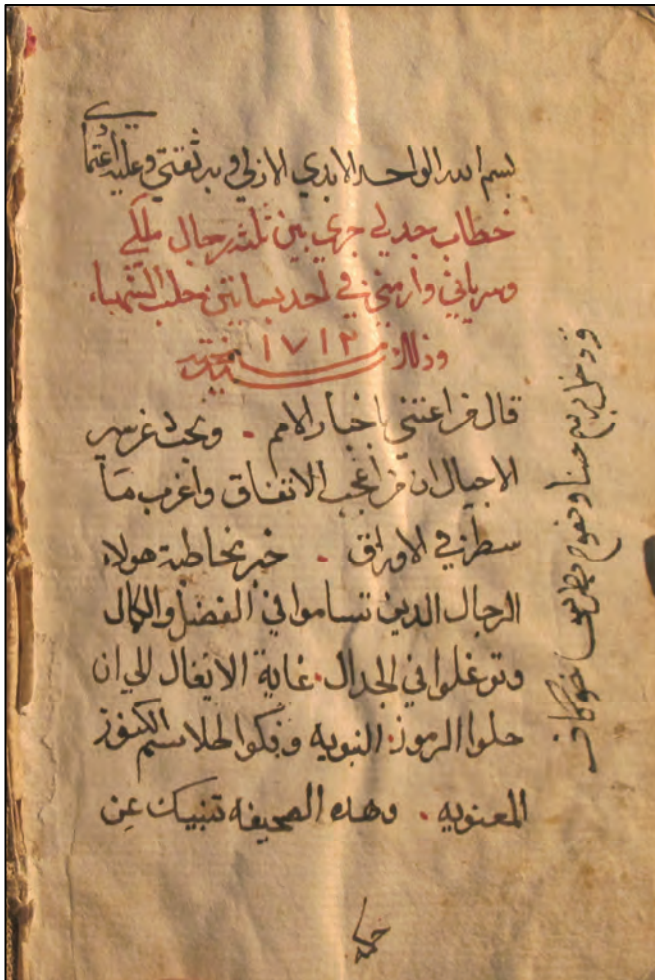 بسم الله الواحد الابدي الازلي وبه ثقتي وعليه أعتمادي
خطاب جدلي جري بين ثلثه رجال ملكي
وسرياني وارمني في احد بساتين حلب الشهباء
وذلك سنة ١٧١٢
قال من اعتني باخبار الامم . وبحث عن سير
الاجيال ان من اعجب الاتفاق واغرب ما
سطر في الاوراق . خبر مخاطبة هولاء
الرجال الدين تساموا في الفضل والكمال
وتوغلوا في الجدال . غاية الايغال الي ان
حلوا الرموز النبويه وفكوا طلاسم الكنوز
المعنويه . وهده الصحيفه تنبيك عن